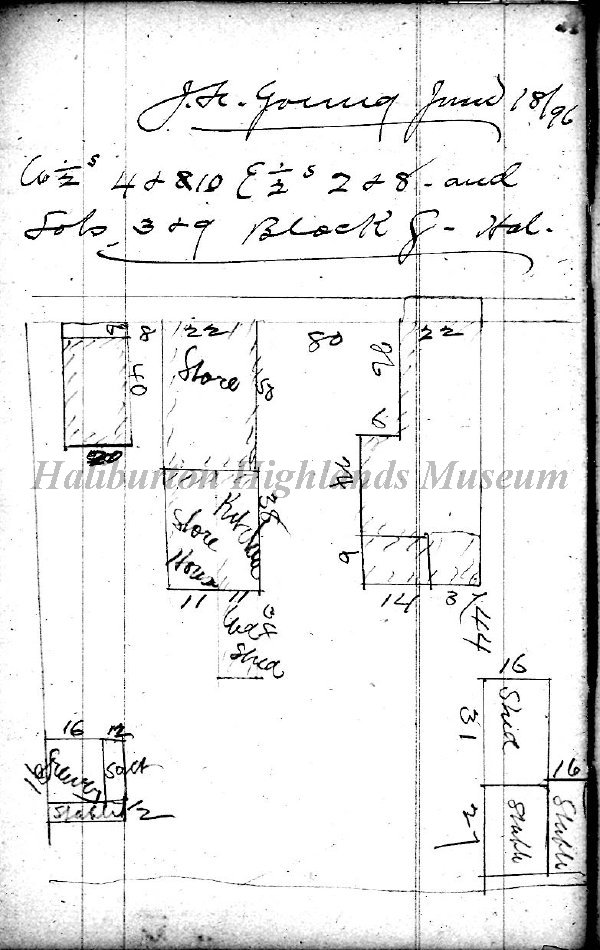 J. H. Young June 18/96
W ½ s 4 & 10 E ½ s 2 & 8 - and
Lots 3 & 9 Block G - Hal.
8 22 80 26 22
Store
40 50
20
Haliburton Highlands Museum
38
Kitchen
Store
House
9
11 11 14 3 44
Shed
16
31 Shed
16 12
Salt
16
Stable 12
27 Stable Stable